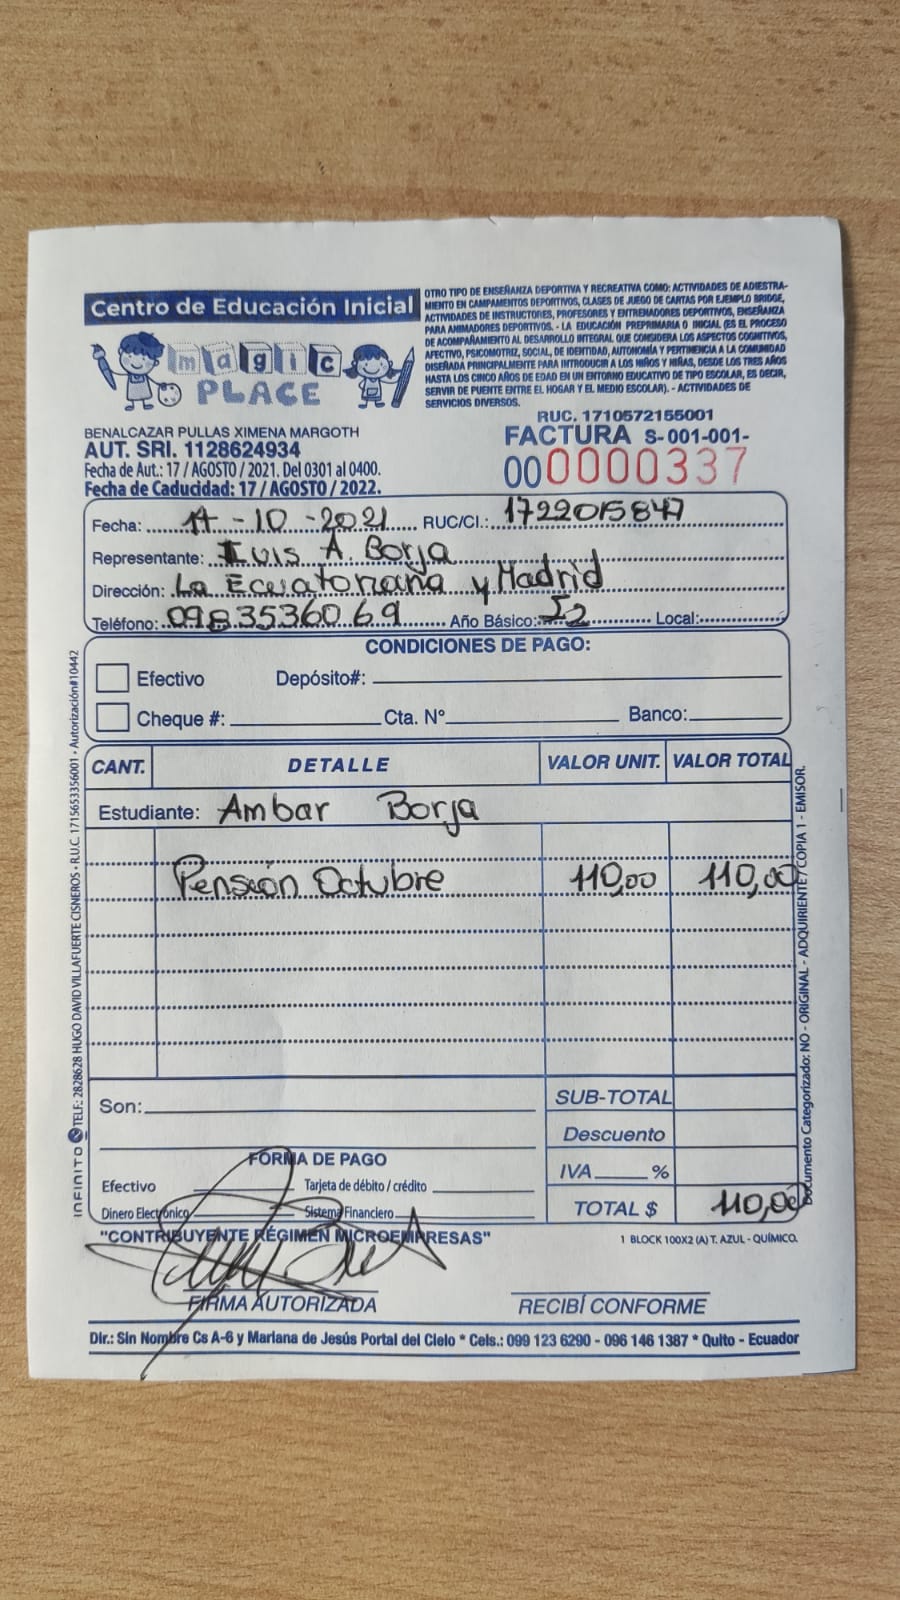 Centro de Educación Inicial
magic
PLACE
OTRO TIPO DE ENSEÑANZA DEPORTIVA Y RECREATIVA COMO: ACTIVIDADES DE ADIESTRA-
MIENTO EN CAMPAMENTOS DEPORTIVOS, CLASES DE JUEGO DE CARTAS POR EJEMPLO BRIDGE,
ACTIVIDADES DE INSTRUCTORES, PROFESORES Y ENTRENADORES DEPORTIVOS, ENSEÑANZA
PARA ANIMADORES DEPORTIVOS. - LA EDUCACIÓN PREPRIMARIA O INICIAL (ES EL PROCESO
DE ACOMPAÑAMIENTO AL DESARROLLO INTEGRAL QUE CONSIDERA LOS ASPECTOS COGNITIVOS,
AFECTIVO, PSICOMOTRIZ, SOCIAL, DE IDENTIDAD, AUTONOMÍA Y PERTINENCIA A LA COMUNIDAD
DISEÑADA PRINCIPALMENTE PARA INTRODUCIR A LOS NIÑOS Y NIÑAS, DESDE LOS TRES AÑOS
HASTA LOS CINCO AÑOS DE EDAD EN UN ENTORNO EDUCATIVO DE TIPO ESCOLAR, ES DECIR,
SERVIR DE PUENTE ENTRE EL HOGAR Y EL MEDIO ESCOLAR). - ACTIVIDADES DE
SERVICIOS DIVERSOS.
RUC. 1710572155001
BENALCAZAR PULLAS XIMENA MARGOTH
AUT. SRI. 1128624934
Fecha de Aut.: 17 / AGOSTO / 2021. Del 0301 al 0400.
Fecha de Caducidad: 17 / AGOSTO / 2022.
FACTURA S-001-001-
000000337
Fecha: 14-10-2021 RUC/CI.: 1722015847
Representante: Luis A. Borja
Dirección: La Ecuatoriana y Madrid
Teléfono: 0983536069 Año Básico: I2 Local:
CONDICIONES DE PAGO:
Efectivo Depósito#:
Cheque #: Cta. N° Banco:
CANT. DETALLE VALOR UNIT. VALOR TOTAL
Estudiante: Ambar Borja
Pensión Octubre 110,00 110,00
Son: SUB-TOTAL
Descuento
FORMA DE PAGO
IVA %
Efectivo Tarjeta de débito / crédito
Dinero Electrónico Sistema Financiero
TOTAL $ 110,00
"CONTRIBUYENTE RÉGIMEN MICROEMPRESAS" 1 BLOCK 100X2 (A) T. AZUL - QUÍMICO.
FIRMA AUTORIZADA RECIBÍ CONFORME
Dir.: Sin Nombre Cs A-6 y Mariana de Jesús Portal del Cielo * Cels.: 099 123 6290 - 096 146 1387 * Quito - Ecuador
INFINITO TELF.: 2828628 HUGO DAVID VILLAFUERTE CISNEROS • R.U.C. 1715653356001 • Autorización#10442
Documento Categorizado: NO - ORIGINAL - ADQUIRIENTE / COPIA 1 - EMISOR.